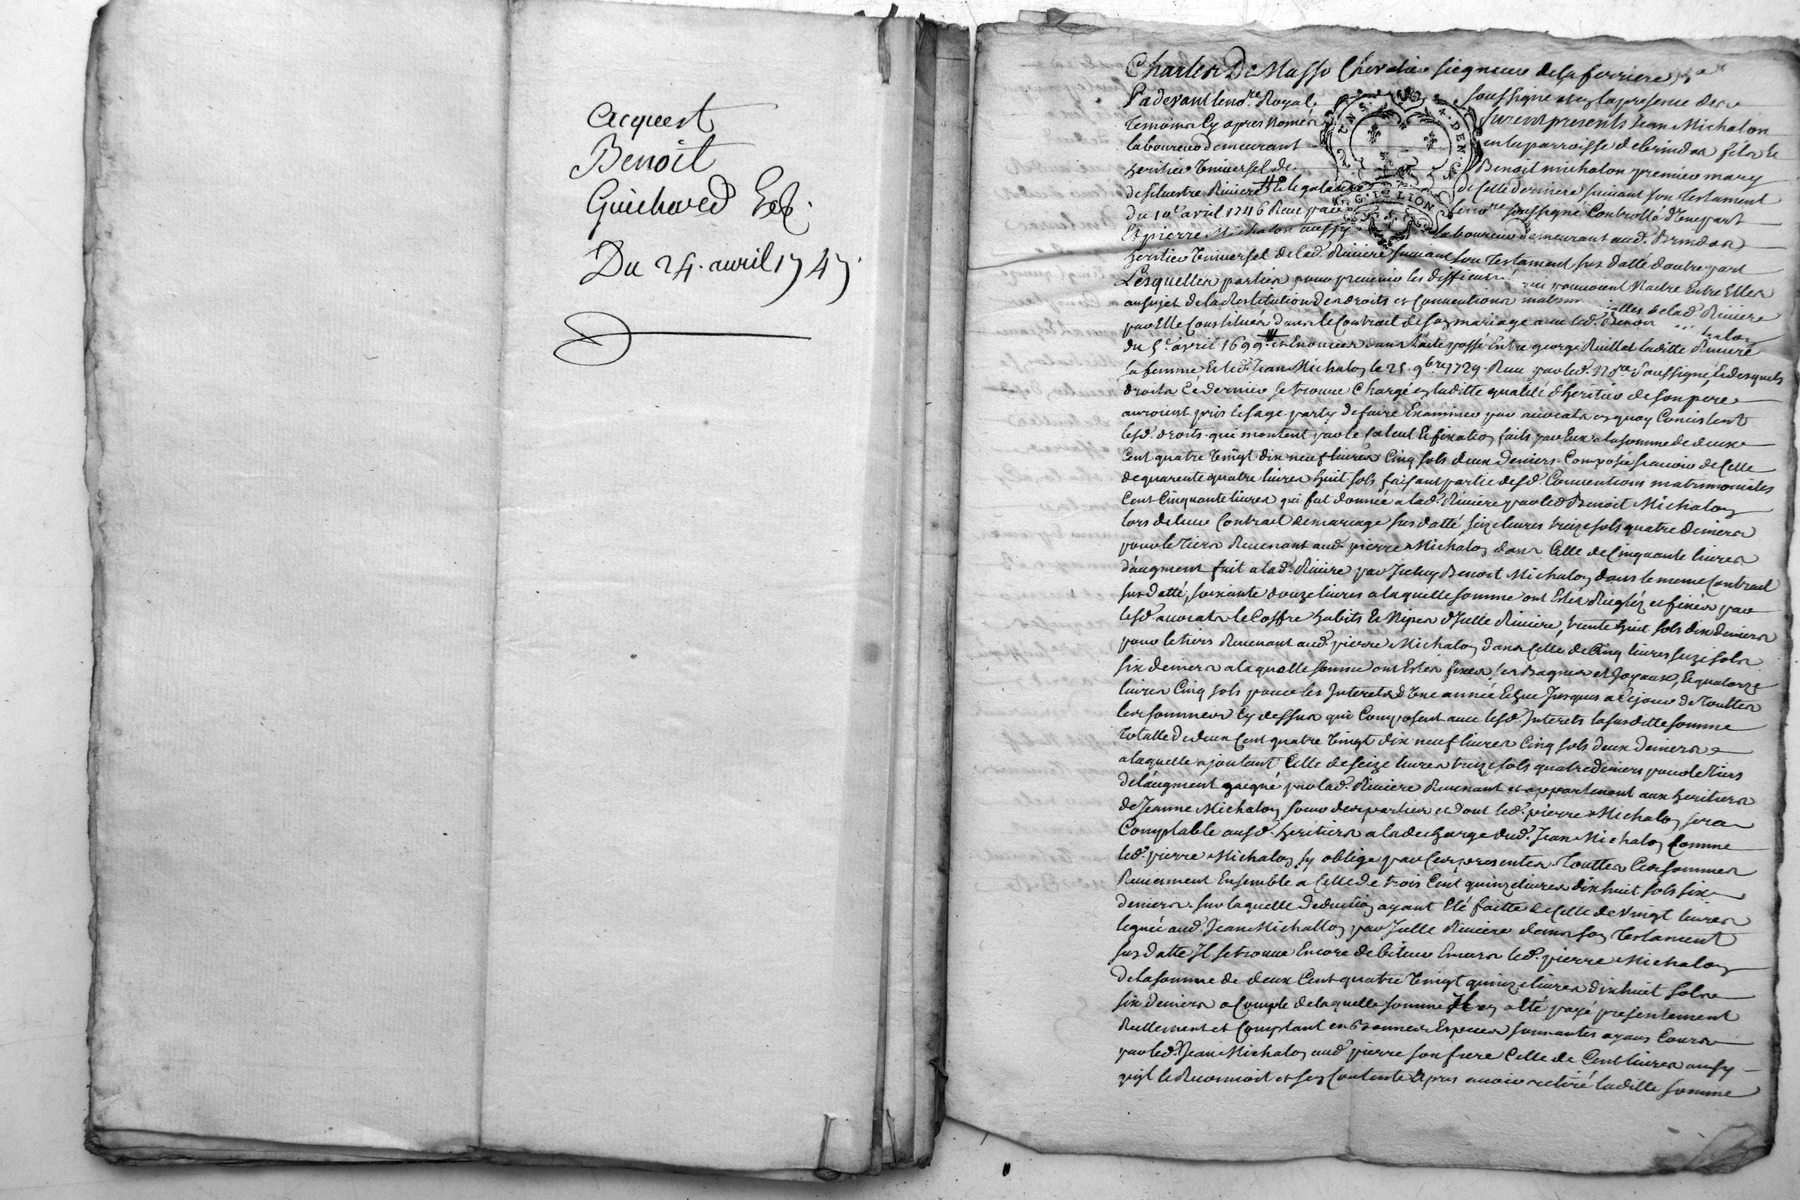 acquest
Benoit
Guichard
Du 24. avril 1747.
Charles De Masso Chevalier seigneur de la ferriere
Pardevant le no.re Royal soussigné et en la presence des
temoins cy apres només furent presents Jean Michalon
laboureur demeurant en la parroisse de brindas fils et
heritier universel de Benoit michalon premier mary
de Silvestre Riviere et legataire de cette derniere suivant son testament
du 10e avril 1746 Receu par le no.re soussigné Controllé d'une part
Et pierre Michalon aussy laboureur demeurant aud. brindas
heritier universel de lad. Riviere suivant son testament sus datté d'autre part
Lesquelles parties pour prevenir les difficultés qui pouvoient Naitre Entre Elles
au sujet de la Restitution des droits et conventions matrimonialles de lad. Riviere
par Elle Constitués dans le Contract de son mariage avec led. Benoit Michalon
du 5e avril 1699. et Enoncées dans l'acte passé Entre george Ruillat laditte Riviere
sa femme Et led. Jean Michalon le 25. 9bre 1729. Receu par led. No.re soussigné, desquels
droits Ce dernier se trouve Chargé en laditte qualité d'heritier de son pere
auroient pris le sage party de faire Examiner par avocats en quoy Consistent
lesd. droits qui montent par le calcul Et fixation faits par Eux a la somme de deux
Cent quatre Vingt dix neuf livres Cinq sols deux deniers Composée scavoir de Celle
de quarente quatre livres huit sols faisant partie desd. Conventions matrimoniales
Cent Cinquante livres qui fut donnée a lad. Riviere par led Benoit Michalon
lors de leur Contract de mariage sus datté seize livres treize sols quatre deniers
pour le tiers Revenant aud. pierre Michalon dans Celle de Cinquante livres
d'augment fait a lad. Riviere par Icelluy Benoit Michalon dans le meme Contract
sus datté, soixante douze livres a laquelle somme ont Estés Reglés et fixées par
lesd. avocats le Coffre habits Et Nipes d'Icelle Riviere, trente huit sols dix deniers
pour le tiers Revenant aud. pierre Michalon dans Celle de Cinq livres seize sols
six deniers a laquelle somme ont Estés fixés les Bagues et Joyaux, Et quatorze
livres Cinq sols pour les Interets d'Une année Echue Jusques a Ce jour de Touttes
les sommes Cy dessus qui Composent avec lesd. Interets la susditte somme
Totalle de deux Cent quatre Vingt dix neuf livres Cinq sols deux deniers
a laquelle ajoutant Celle de seize livres treize sols quatre deniers pour le tiers
de l'augment gaigné par lad. Riviere Revenant et appartenant aux heritiers
de Jeanne Michalon soeur des parties et dont led. pierre Michalon sera
Comptable ausd. heritiers a la decharge dud. Jean Michalon Comme
led. pierre Michalon sy oblige par Ces presentes Touttes Ces sommes
Reviennent Ensemble a Celle de trois Cent quinze livres dix huit sols six
deniers sur laquelle deduction ayant Eté faitte de Celle de Vingt livres
leguée aud. Jean Michallon par Icelle Riviere dans son Testament
sus datté Il se trouve Encore debiteur Envers led. pierre Michalon
de la somme de deux Cent quatre Vingt quinze livres dix huit sols
six deniers a Compte de laquelle somme Il en a Eté payé presentement
Reellement et Comptant en Bonnes Especes sonnantes ayans Cours
par led. Jean Michalon aud. pierre son frere Celle de Cent livres ainsy
qu'il le Reconnoit et s'en Contente apres avoir retiré laditte somme